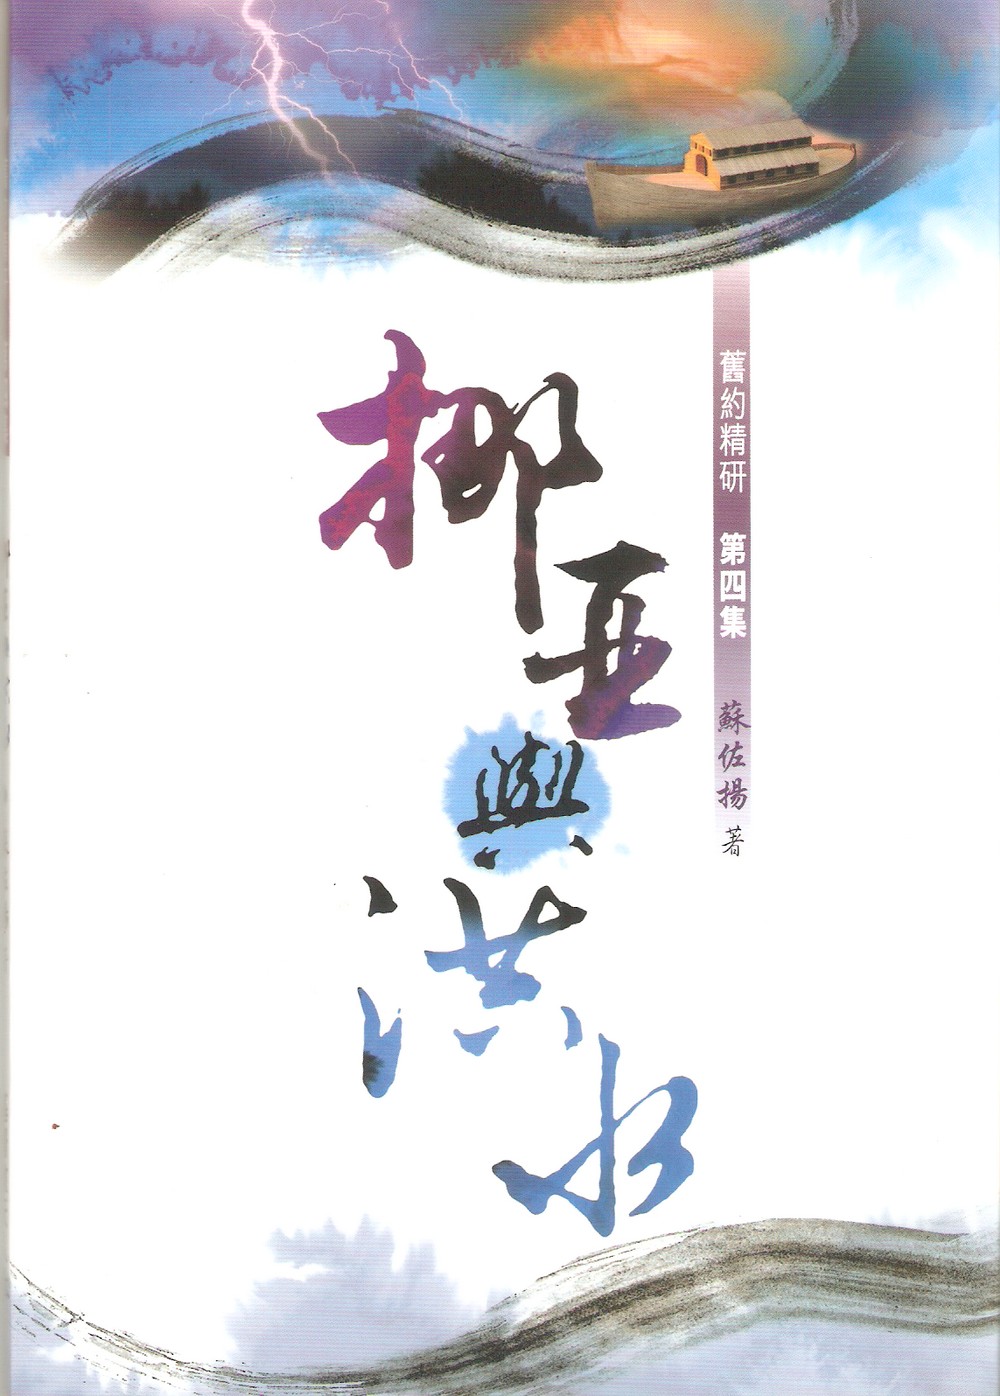 舊約精研 第四集 蘇佐揚 著
挪亞與洪水